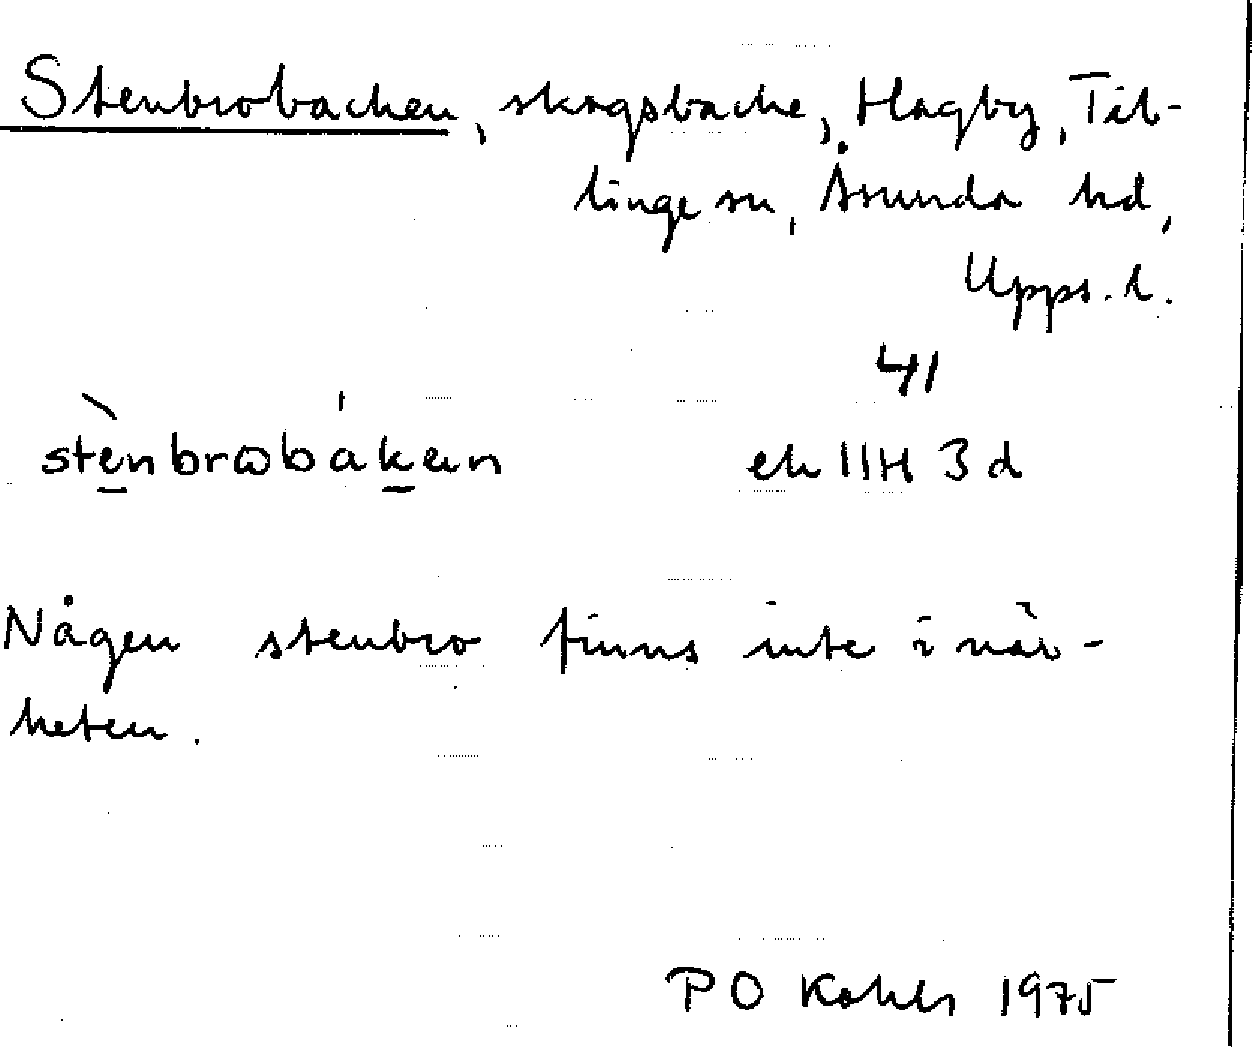 Stenbrobacken, skogsbacke, Hagby, Tib-
linge sn, Åsunda hd,
Upps. l.
41
stènbrωbákεn ek 11H 3d
Någen stenbro finns inte i när-
heten.
P O 1975